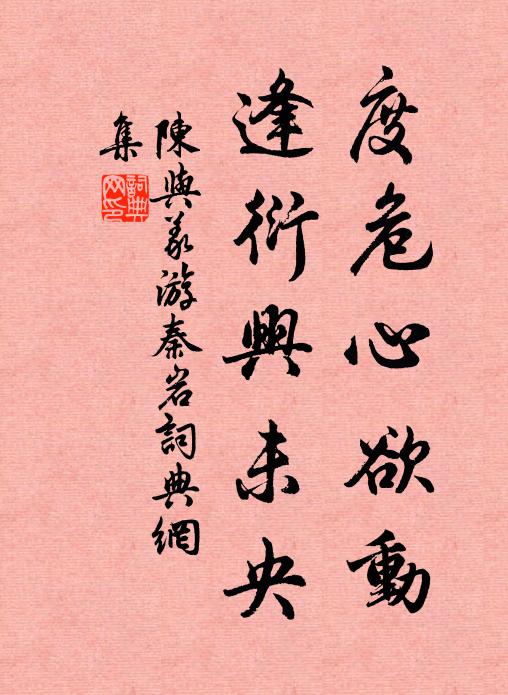 度危心欲動
逢衍興未央
陳與義游秦岩詞典網
集
詞典網印